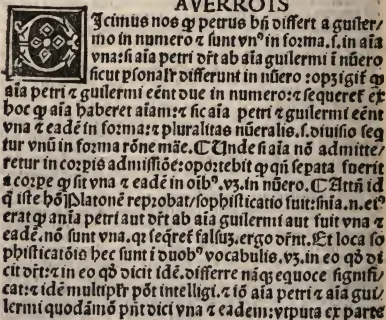 AVERROIS
Icimus nos ꝙ petrus bñ differt a guiller/
mo in numero ⁊ sunt vnꝰ in forma.s.in aĩa
vna:si aĩa petri dr̃t ab aĩa guilermi ĩ nũero
sicut ꝑsonalr̃ differunt in nũero:opʒ igit̃ ꝙ
aĩa petri ⁊ guilermi eẽnt due in numero:⁊ sequeret̃ ex
hoc ꝙ aĩa haberet aĩam:⁊ sic aĩa petri ⁊ guilermi eẽnt
vna ⁊ eadẽ in forma:⁊ pluralitas nũeralis.s.diuisio seq̃
tur vnũ in forma rõne mãe. ⸿Unde si aĩa nõ admitte/
retur in corpis admissiõe:oportebit ꝙ qñ sepata fuerit
a corpe ꝙ sit vna ⁊ eadẽ in oĩbꝰ.vʒ.in nũero. ⸿Attñ id
ꝙ iste hõ Platonẽ reprobat/sophisticatio fuit:snĩa.n.eiꝰ
erat ꝙ anĩa petri aut dr̃t ab aĩa guilermi aut fuit vna ⁊
eadẽ.nõ sunt vna.qꝛ seq̃ret̃ falsuʒ.ergo dr̃nt.Et loca so
phisticatiõis hec sunt ĩ duobꝰ vocabulis.vʒ.in eo qđ di
cit dr̃t:⁊ in eo qđ dicit idẽ.differre nãqʒ equoce significi
cat:⁊ idẽ multiplr̃ põt intelligi.⁊ iõ aĩa petri ⁊ aĩa gui/
lermi quodãmõ pñt dici vna ⁊ eadem:vtputa ex parte